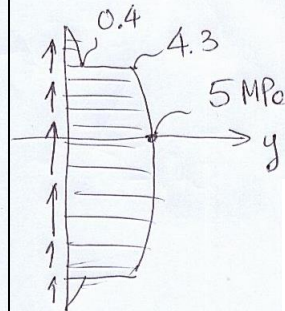 0.4
4.3
5 MPa
y